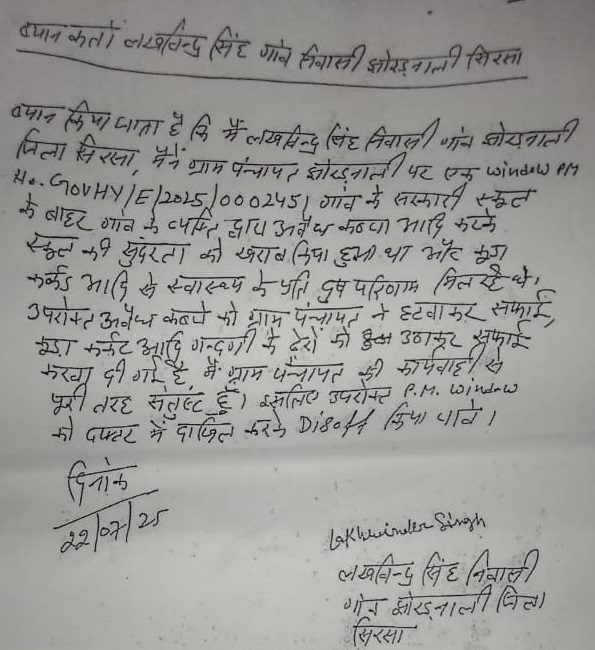 ब्यान कर्ता लखविन्द्र सिंह गांव निवासी झोरड़नाली सिरसा
ब्यान किया जाता है कि मैं लखविन्द्र सिंह निवासी गांव झोरड़नाली
जिला सिरसा, मैंने ग्राम पंचायत झोरड़नाली पर एक window PM
No. GOVHY/E/2025/0002451 गांव के सरकारी स्कूल
के बाहर गांव के व्यक्ति द्वारा अवैध कब्जा आदि करके
स्कूल की सुंदरता को खराब किया हुआ था और कूड़ा
कर्कट आदि से स्वास्थ्य के प्रति दुष परिणाम मिल रहे थे।
उपरोक्त अवैध कब्जे को ग्राम पंचायत ने हटवाकर सफाई,
कूड़ा कर्कट आदि गन्दगी के ढेरों को उठाकर सफाई
करवा दी गई है, मैं ग्राम पंचायत की कार्यवाही से
पूरी तरह संतुष्ट हूँ। इसलिए उपरोक्त P.M. window
को दफ्तर में दाखिल करके Disoff किया जावे।
दिनांक
22/07/25
Lakhwinder Singh
लखविन्द्र सिंह निवासी
गांव झोरड़नाली जिला
सिरसा